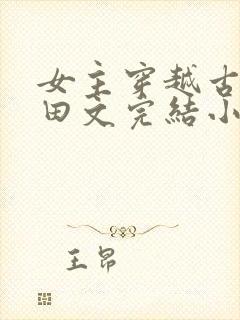 女主穿越古
田文完結小
王昂